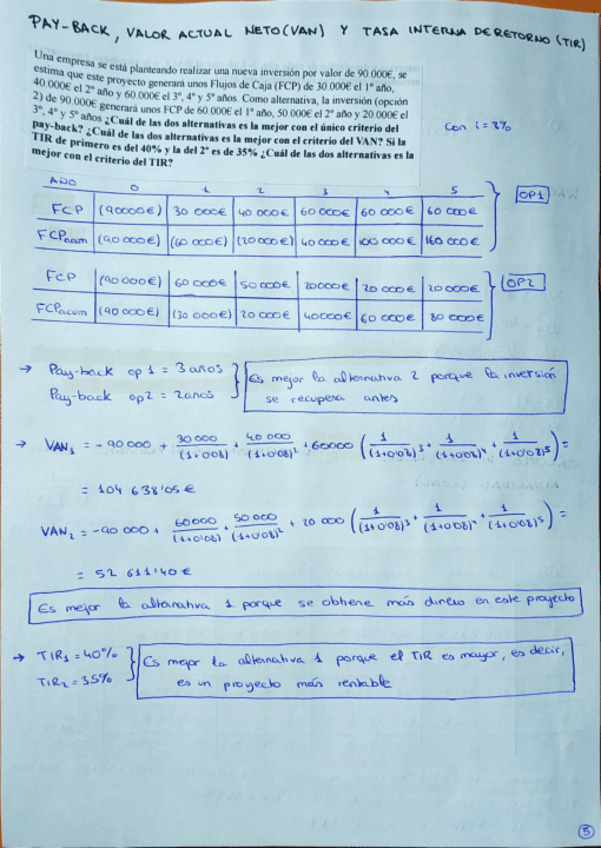 PAY-BACK, VALOR ACTUAL NETO (VAN) Y TASA INTERNA DE RETORNO (TIR)
Una empresa se está planteando realizar una nueva inversión por valor de 90.000€, se
estima que este proyecto generará unos Flujos de Caja (FCP) de 30.000€ el 1º año,
40.000€ el 2º año y 60.000€ el 3º, 4º y 5º años. Como alternativa, la inversión (opción
2) de 90.000€ generará unos FCP de 60.000€ el 1º año, 50.000€ el 2º año y 20.000€ el
3º, 4º y 5º años ¿Cuál de las dos alternativas es la mejor con el único criterio del
pay-back? ¿Cuál de las dos alternativas es la mejor con el criterio del VAN? Si la
TIR de primero es del 40% y la del 2º es de 35% ¿Cuál de las dos alternativas es la
mejor con el criterio del TIR?
Con i=8%
AÑO 0 1 2 3 4 5
FCP (90000€) 30 000€ 40 000€ 60 000€ 60 000€ 60 000€
FCPacum (90 000€) (60 000€) (20 000€) 40 000€ 100 000€ 160 000€
OP1
FCP (90 000€) 60 000€ 50 000€ 20000€ 20 000€ 20 000€
FCPacum (90 000€) (30 000€) 20 000€ 40000€ 60 000€ 80 000€
OP2
→ Pay-back op 1 = 3 años
Pay-back op2 = 2años
Es mejor la alternativa 2 porque la inversión
se recupera antes
→ VAN1 = - 90 000 + 30 000/(1+0'08) + 40 000/(1+0'08)² + 60000 (1/(1+0'08)³ + 1/(1+0'08)⁴ + 1/(1+0'08)⁵) =
= 104 638'05 €
VAN2 = -90 000 + 60000/(1+0'08) + 50 000/(1+0'08)² + 20 000 (1/(1+0'08)³ + 1/(1+0'08)⁴ + 1/(1+0'08)⁵) =
= 52 611'40 €
Es mejor la alternativa 1 porque se obtiene más dinero en este proyecto
→ TIR1 = 40%
TIR2 = 35%
Es mejor la alternativa 1 porque el TIR es mayor, es decir,
es un proyecto más rentable
5